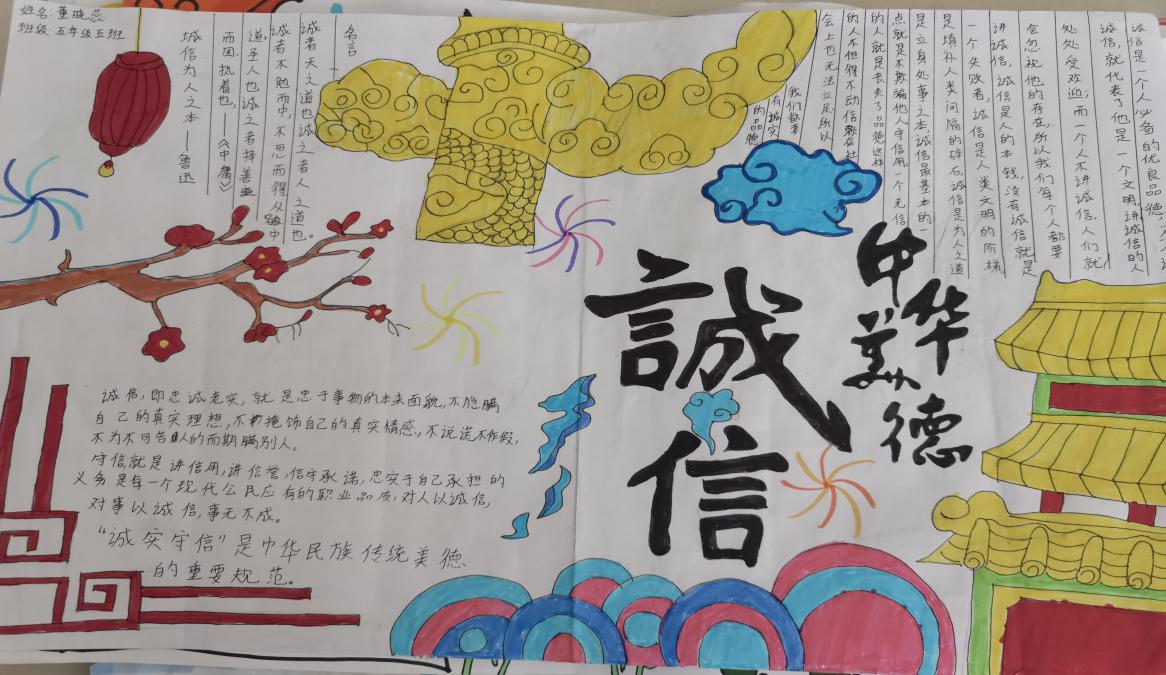 姓名:董晓蕊
班级:五年级五班
名言
诚者天之道也诚之者人之道也。
诚者不勉而中,不思而得从容中
道圣人也诚之者择善
而固执着也,——《中庸》
诚信为人之本——鲁迅
诚信是一个人必备的优良品德,
诚信,就代表了他是一个文明讲诚信的人
处处受欢迎;而一个人不讲诚信,人们就
会忽视他的存在,所以我们每个人都要
讲诚信,诚信是人的本钱,没有诚信就是
一个失败者,诚信是人类文明的阶梯
是填补人类间隔的碎石诚信是为人之道
是立身处事之本,诚信最基本的一
点就是不欺骗他人守信用一个无信
的人就是丧失了品德这样
的人不但得不动信赖在社
会上也无法立足所以
我们都要
有诚实
的品德
中华
美德
誠信
诚信,即忠诚老实,就是忠于事物的本来面貌,不隐瞒
自己的真实理想,不掩饰自己的真实情感,不说谎不作假,
不为不可告人的而期瞒别人。
守信就是讲信用,讲信誉,信守承诺,忠实于自己承担的
义务是每一个现代公民应有的职业品质,对人以诚信,
对事以诚信,事无不成。
“诚实守信”是中华民族传统美德
的重要规范。